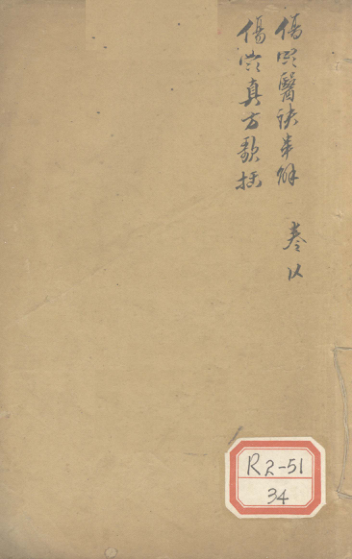 傷寒醫訣串解 卷
傷寒真方歌括
R2-51
34